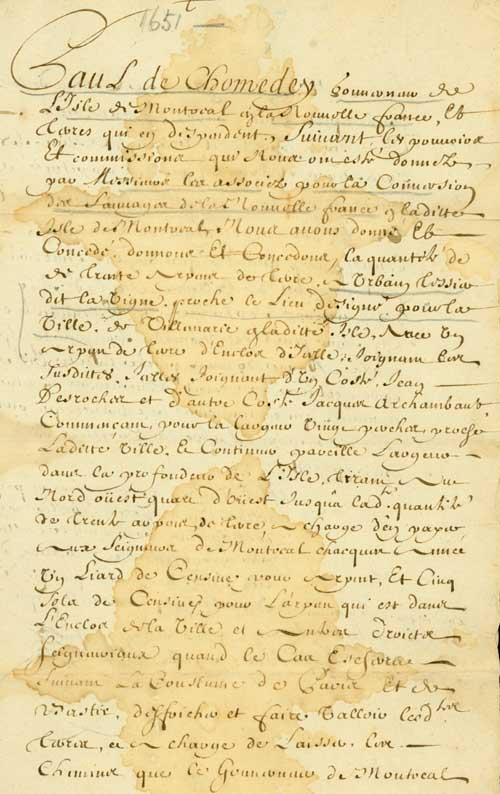 1651
Paul de Chomedey Gouverneur de
L'Isle de Montreal en la Nouvelle france, Et
terres qui en dependent, Suivant les pouvoirs
Et commissions qui Nous ont esté donnez
par Messieurs les associez pour la Conversion
des Sauvages de la Nouvelle france en laditte
Isle de Montreal, Nous avons donné Et
Concedé, donnons Et Concedons, la quantité de
de trente Arpens de terre, A Urbain Tessier
dit la Vigne, proche le Lieu designé pour la
Ville, de Villemarie en laditte Isle, Avec Un
Arpen de terre d'Enclos d'Icelle, Joignant les
susdittes, Icelles Joignant D'Un Costé Jean
Desroches et d'autre Costé Jacques Archambaut
Commencant, pour la largeur Vingt perches, proche
Laditte Ville, Et Continuer pareille Largeur
dans la profondeur de L'Isle, tirant Au
Nord oüest quart d'oüest Jusqu'a lad. quantité
de trente arpens, de terre, A charge d'en payer
Aux Seigneurs de Montreal chacque Année
Un Liard de Censives pour Arpent, Et Cinq
Sols de Censives pour L'arpen qui est dans
L'Enclos de la Ville et Autres droicts
seigneuriaux quand le Cas Escherra
Suivant La Coustume de Paris Et de
Bastir, deffricher et faire Valloir lesd.
terres, et A charge de Laisser les
Chemins que le Gouverneur de Montreal